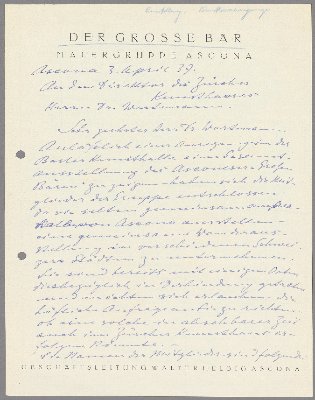 DER GROSSE BÄR
MALERGRUPPE ASCONA
Ascona 3. April 29.
An den Direktor des Zürcher
Kunsthauses
Herrn Dr. Wartmann.
Sehr geehrter Herr Dr. Wartmann.
Anlässlich einer Anregung von der
Basler Kunsthalle eine Gesamt-
ausstellung des Asconeser Grossen
Bären zu zeigen haben sich die Mit-
glieder der Gruppe entschlossen
Ascona
eine gemeinsame Wander aus-
stellung in verschiedenen Schwei-
zer Städten zu unternehmen.
Sie sind bereits mit einigen Orten
diesbezüglich in Verbindung getreten
und möchten sich erlauben, die
höfliche Anfrage an Sie zu richten,
ob eine solche in absehbarer Zeit
auch im Zürcher Kunsthaus er-
folgen könnte.
Die Namen der Mitglieder sind folgende
GESCHÄFTSLEITUNG WALTER HELBIG ASCONA